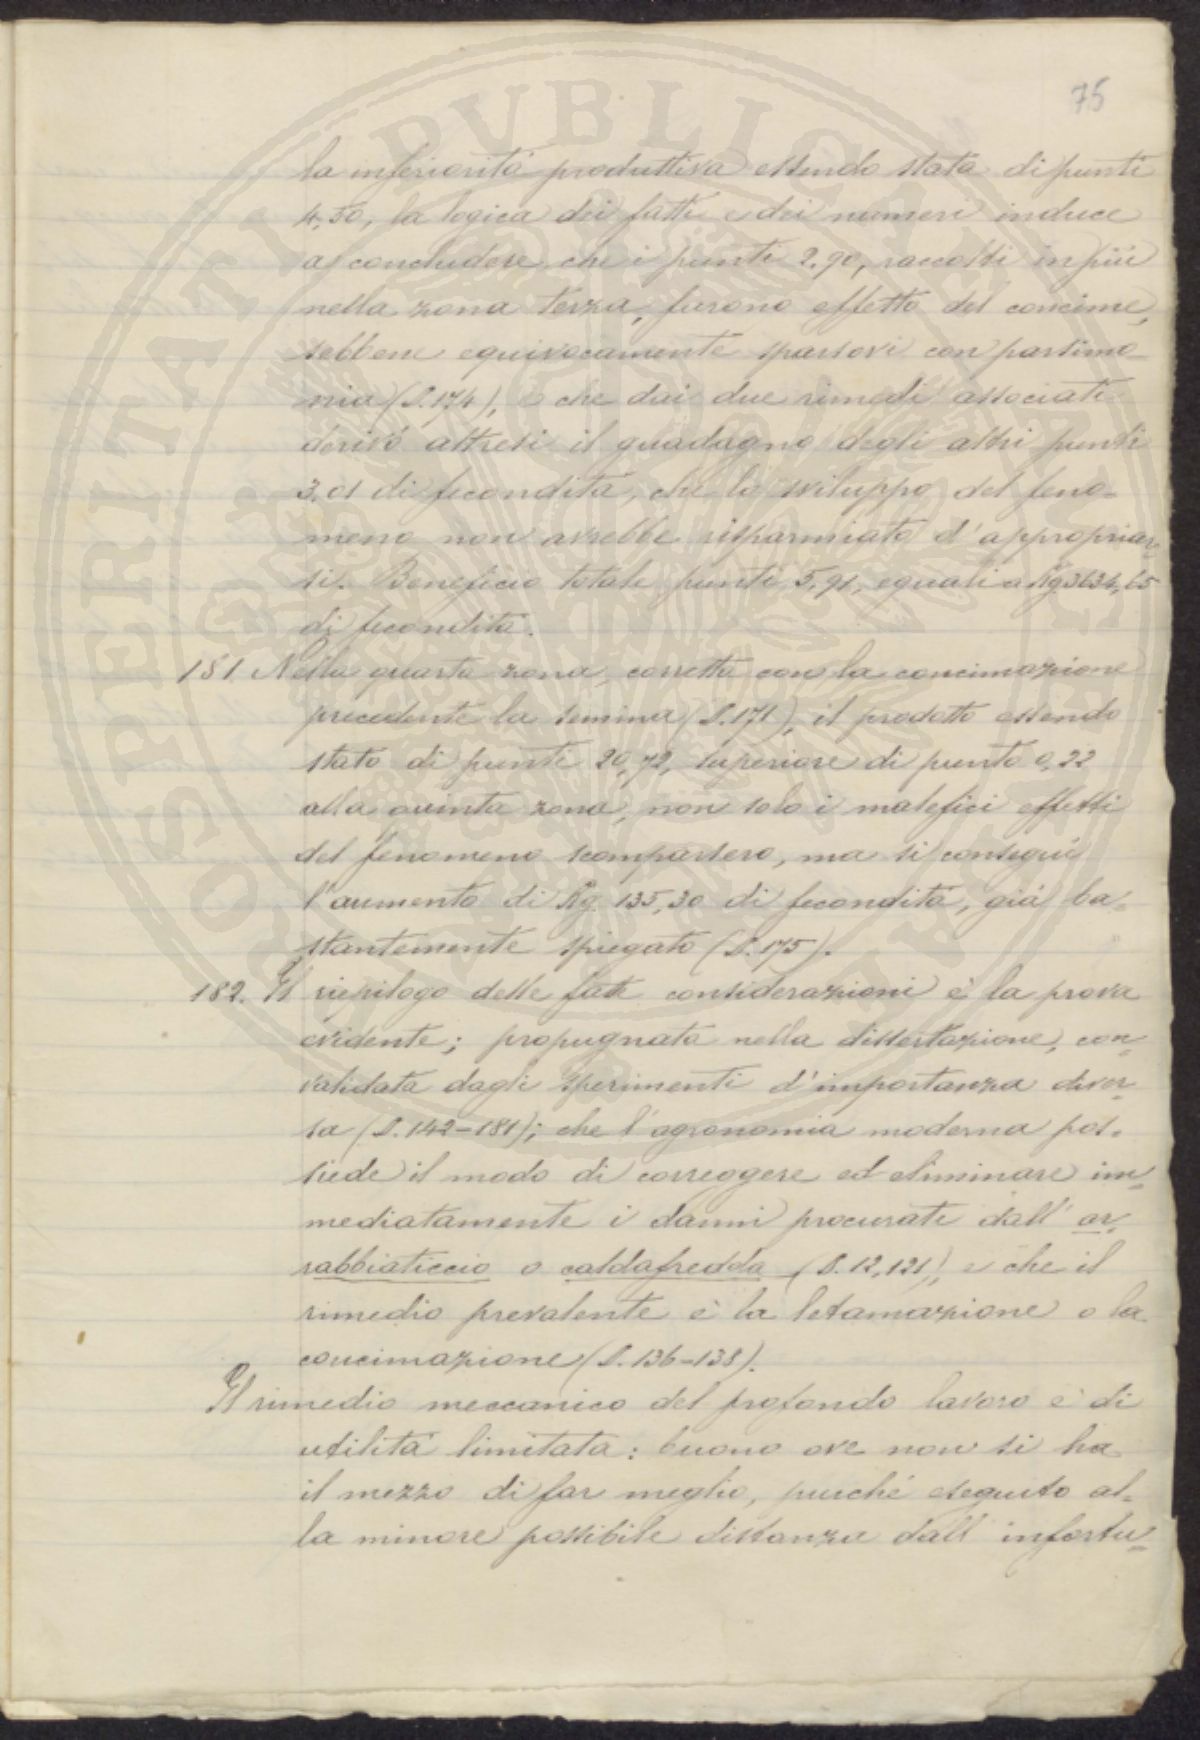 75
la inferiorità produttiva essendo stata di punti
4,50, la logica dei fatti e dei numeri induce
a concludere che i punti 2.90, raccolti in più
nella zona terza, furono effetto del concime,
sebbene equivocamente sparsovi con parsimo-
nia (S. 174), e che dai due rimedi associati
derivò altresì il guadagno degli altri punti
3,01 di fecondità, che lo sviluppo del feno-
meno non avrebbe risparmiato d'appropriar-
si. Beneficio totale punti 5,91, eguali a Kg 3634,65
di fecondità.
181 Nella quarta zona, corretta con la concimazione
precedente la semina (S. 171), il prodotto essendo
stato di punti 20,72, superiore di punto 0,22
alla quinta zona, non solo i malefici effetti
del fenomeno scomparsero, ma si conseguì
l'aumento di Kg. 135,30 di fecondità, già ba-
stantemente spiegato (S. 175).
182. Il riepilogo delle fatte considerazioni è la prova
evidente; propugnata nella dissertazione, con-
validata dagli sperimenti d'importanza diver-
sa (S. 142-181); che l'agronomia moderna pos-
siede il modo di correggere ed eliminare im-
mediatamente i danni procurati dall'ar-
rabbiaticcio o caldafredda (S. 12, 121), e che il
rimedio prevalente è la letamazione o la
concimazione (S. 136-138).
Il rimedio meccanico del profondo lavoro è di
utilità limitata: buono ove non si ha
il mezzo di far meglio, purché eseguito al-
la minore possibile distanza dall'infortu-
SOSPERITATI PUBLICAE